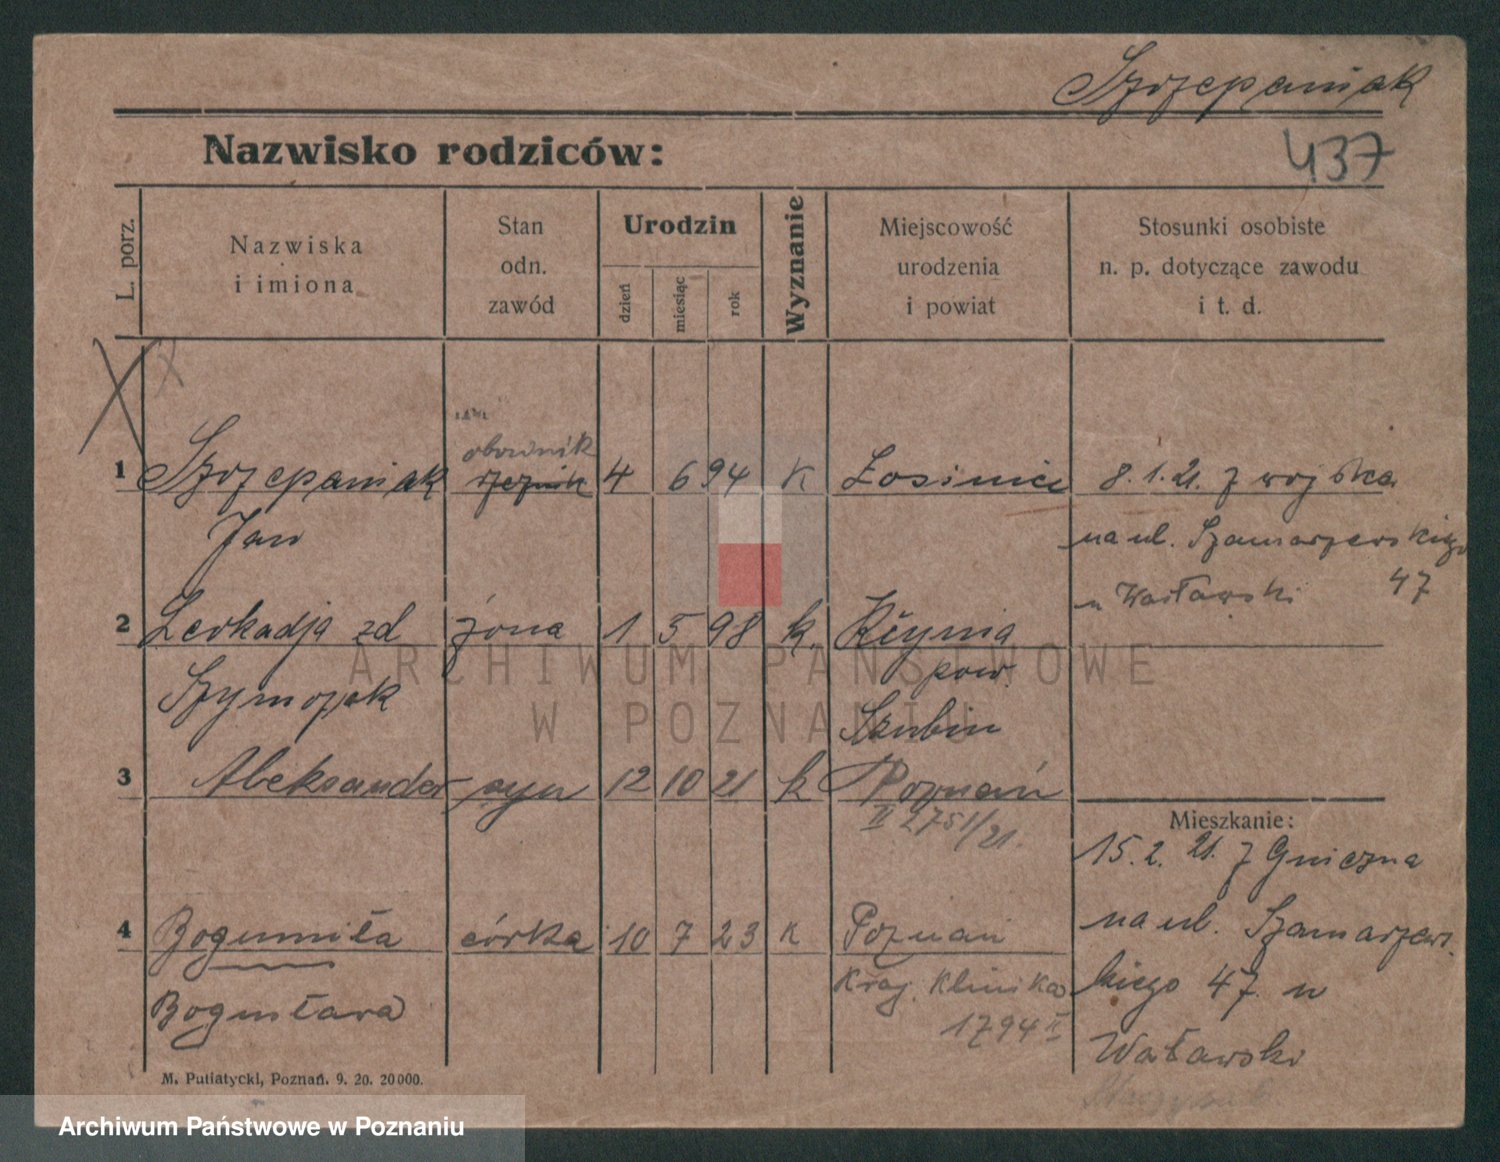 Szczepaniak
437
Nazwisko rodziców:
L. porz.
Nazwiska
i imiona
Stan
odn.
zawód
Urodzin
dzień
miesiąc
rok
Wyznanie
Miejscowość
urodzenia
i powiat
Stosunki osobiste
n. p. dotyczące zawodu
i t. d.
1 Szczepaniak 4 6 94 K 8.1.21. z wojska
Jan
na ul. Szamarzewskiego
47
2 Leokadja zd żona 1 5 98 k. Kcynia
Szymczak
pow.
Szubin
3 Aleksander syn 12 10 21 k Poznań
II 2751/21.
Mieszkanie:
15.2. 21. z Gniezna
na ul. Szamarzews
kiego 47. u
4 Bogumiła córka 10 7 23 K Poznań
Bogusława
Kraj. Klinika
1794 II
M. Putiatycki, Poznań. 9. 20. 20000.
ARCHIWUM PAŃSTWOWE
W POZNANIU
Archiwum Państwowe w Poznaniu